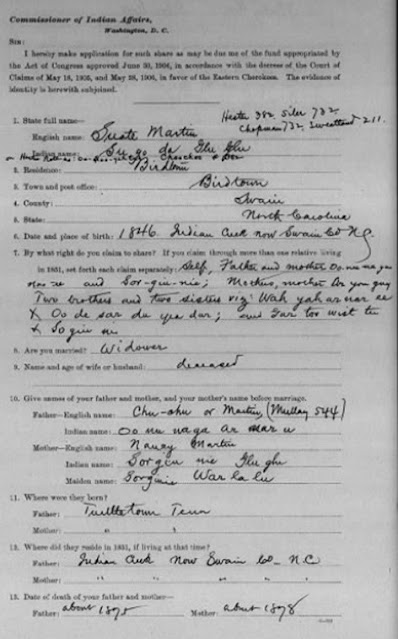 Commissioner of Indian Affairs,
Washington, D. C.
SIR:
I hereby make application for such share as may be due me of the fund appropriated by
the Act of Congress approved June 30, 1906, in accordance with the decrees of the Court of
Claims of May 18, 1905, and May 28, 1906, in favor of the Eastern Cherokees. The evidence of
identity is herewith subjoined.
Hester 382 Siler 732
Chapman 732 Sweatland 211.
1. State full name—
English name: Suate Martin
Indian name: Su go da Glu Glu
2. Residence: Birdtown
3. Town and post office: Birdtown
4. County: Swain
5. State: North Carolina
6. Date and place of birth: 1846 Indian Creek now Swain Co N.C.
7. By what right do you claim to share? If you claim through more than one relative living
in 1851, set forth each claim separately: Self, Father and mother
and Sor-gin-nie; Mother's mother
Two brothers and two sisters viz: Wah yah
& Oo de sar du yea dar; and Tar
&
8. Are you married? Widower
9. Name and age of wife or husband: deceased
10. Give names of your father and mother, and your mother's name before marriage.
Father—English name: Chu-chu or Martin, (Mullay 544)
Indian name: Oo nu
Mother—English name: Nancy Martin
Indian name: Sorgin nie Glu glu
Maiden name: Sorginie War la lu
11. Where were they born?
Father: Tenn
Mother: " "
12. Where did they reside in 1851, if living at that time?
Father: Indian Creek now Swain Co. N.C
Mother: " " " " "
13. Date of death of your father and mother—
Father: about 1895 Mother: about 1898